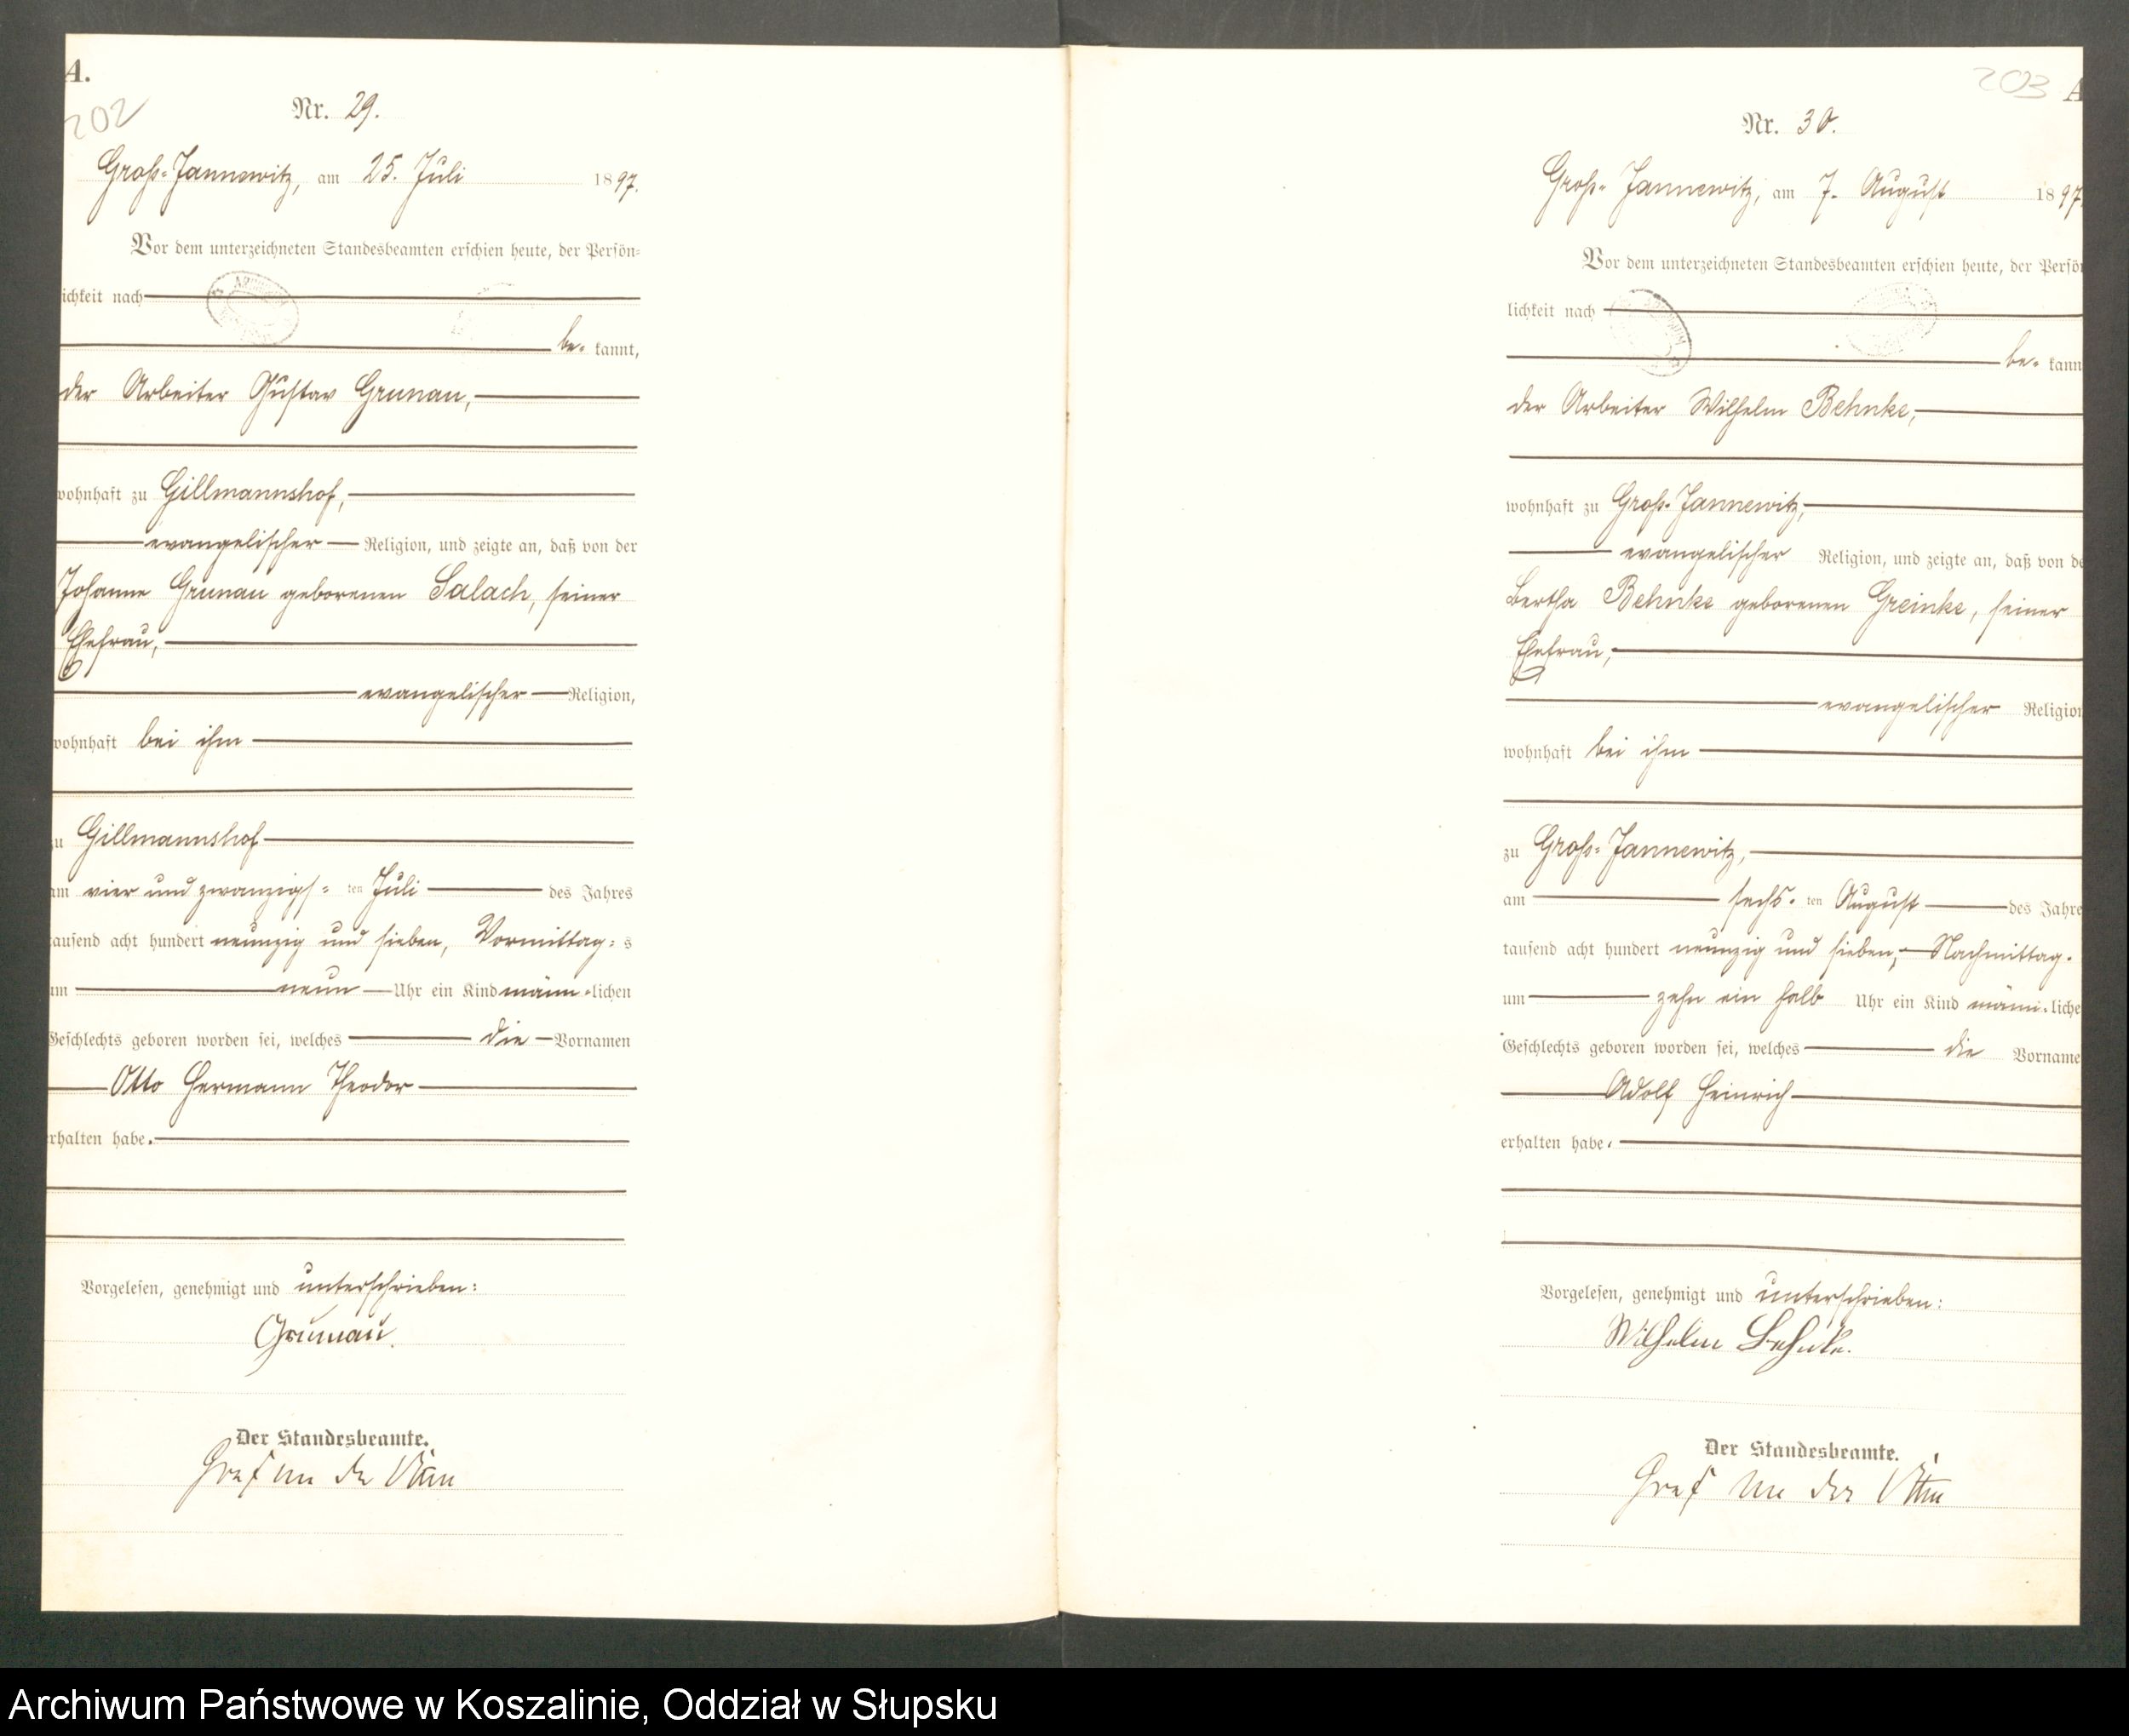 A.
202
Nr. 29.
Groß-Jannewitz, am 25. Juli 1897.
Vor dem unterzeichneten Standesbeamten erschien heute, der Persön-
lichkeit nach
be- kannt,
der Arbeiter Gustav Grunau,
wohnhaft zu Gillmannshof,
evangelischer Religion, und zeigte an, daß von der
Johanne Grunau geborenen Salach, seiner
Ehefrau,
evangelischer Religion,
wohnhaft bei ihm
zu Gillmannshof
am vier und zwanzigs- ten Juli des Jahres
tausend acht hundert neunzig und sieben, Vormittag- s
um neun Uhr ein Kind männ-lichen
Geschlechts geboren worden sei, welches die Vornamen
Otto Hermann Theodor
erhalten habe.
Vorgelesen, genehmigt und unterschrieben:
Grunau.
Der Standesbeamte.
Graf
203 A
Nr. 30.
Groß-Jannewitz, am 7. August 1897
Vor dem unterzeichneten Standesbeamten erschien heute, der Persön
lichkeit nach
be- kann
der Arbeiter Wilhelm Behnke,
wohnhaft zu Groß-Jannewitz,
evangelischer Religion, und zeigte an, daß von de
Bertha Behnke geborenen Greinke, seiner
Ehefrau,
evangelischer Religion
wohnhaft bei ihm
zu Groß-Jannewitz,
am sechs- ten August des Jahre
tausend acht hundert neunzig und sieben, Nachmittag-
um zehn ein halb Uhr ein Kind männ-liche
Geschlechts geboren worden sei, welches die Vorname
Adolf Heinrich
erhalten habe.
Vorgelesen, genehmigt und unterschrieben:
Wilhelm Behnke.
Der Standesbeamte.
Graf von der
Archiwum Państwowe w Koszalinie, Oddział w Słupsku